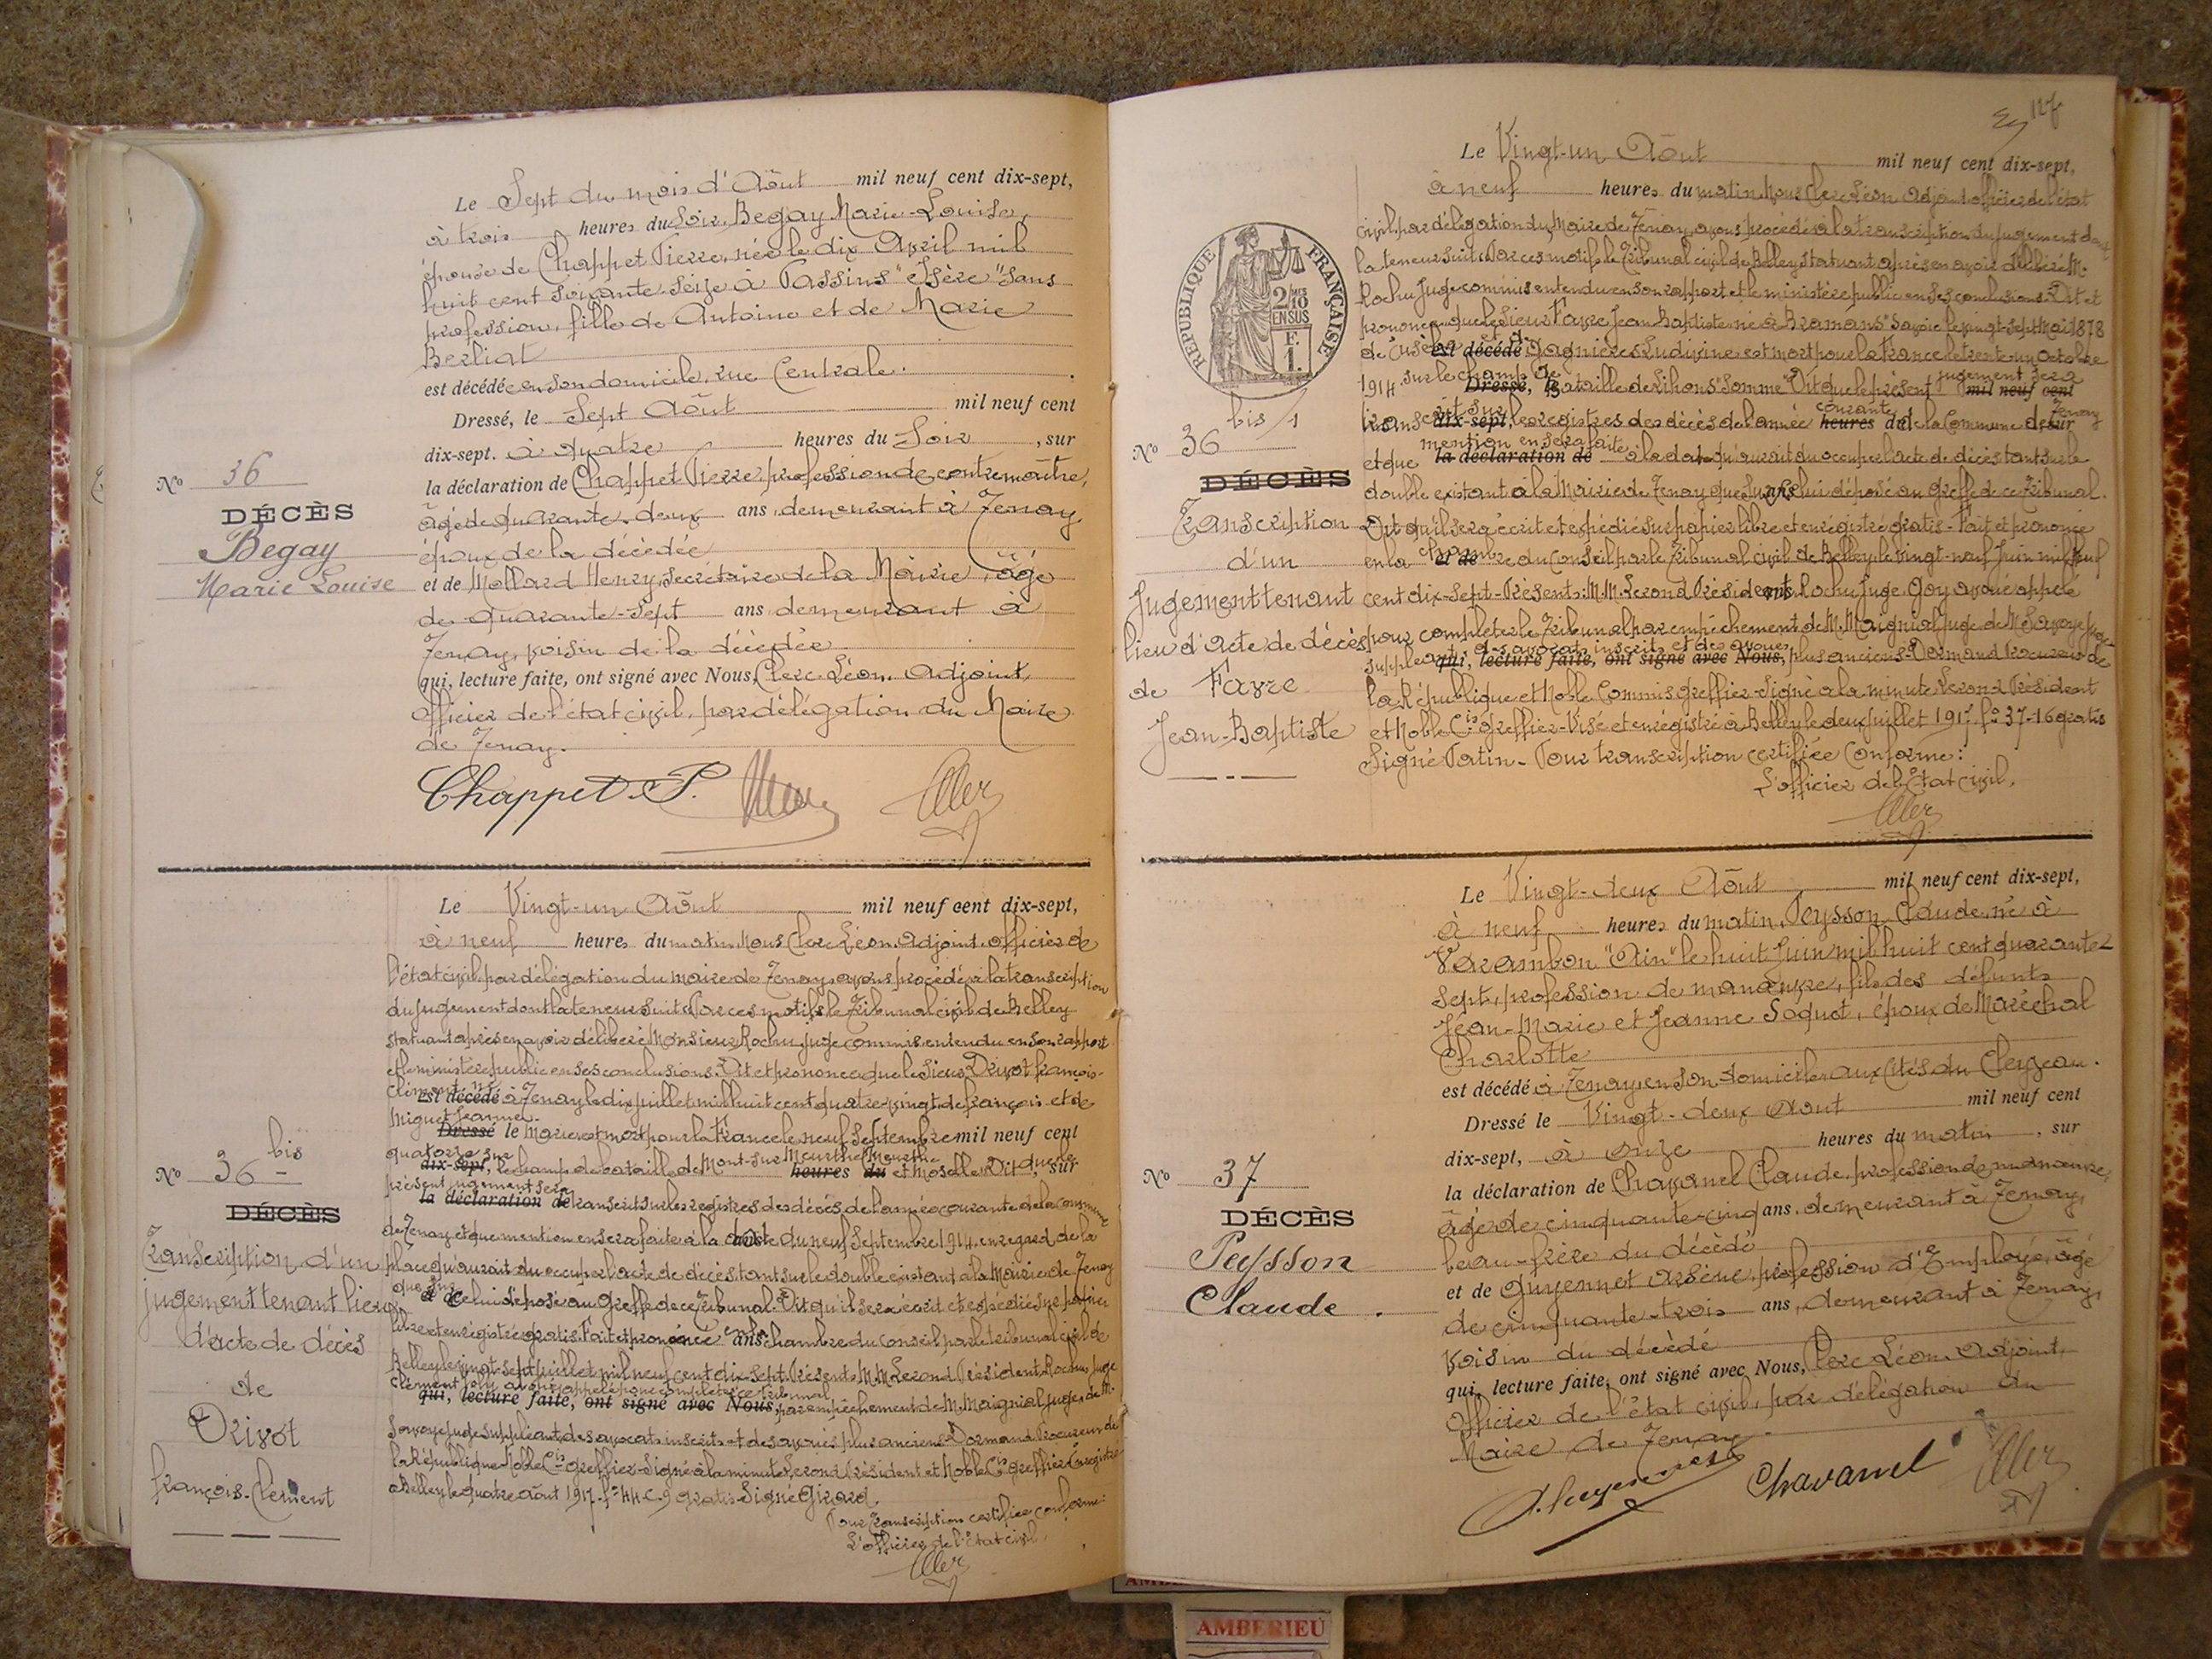 Le Sept du mois d'Août mil neuf cent dix-sept,
à trois heures du Soir, Begay Marie-Louise,
épouse de Chappet Pierre, née le dix Avril mil
huit cent soixante-seize à Passins "Isère" sans
profession, fille de Antoine et de Marie
Berliat
est décédée en son domicile, rue Centrale.
Dressé, le Sept Août mil neuf cent
dix-sept. à quatre heures du Soir, sur
la déclaration de Chappet Pierre, profession de contremaître,
âgé de quarante-deux ans, demeurant à Tenay
époux de la décédée
et de Mollard Henry, secrétaire de la Mairie, âgé
de quarante-sept ans, demeurant à
Tenay, voisin de la décédée
qui, lecture faite, ont signé avec Nous, Clerc Léon, Adjoint,
officier de l'état civil, par délégation du Maire
de Tenay.
Chappet P.
No 36
DÉCÈS
Begay
Marie Louise
Le Vingt-un Août mil neuf cent dix-sept,
à neuf heures du matin, Nous Clerc Léon, Adjoint, officier de
l'état civil par délégation du maire de Tenay, avons procédé à la transcription
du jugement dont la teneur suit: Par ces motifs le Tribunal civil de Belley
statuant après en avoir délibéré Monsieur Rochu, juge commis, entendu en son rapport
et le ministère public en ses conclusions. Dit et prononce que le sieur Drivot françois-
Clément né
est décédé à Tenay le dix juillet mil huit cent quatre-vingt de françois et de
Miguet Jeanne-
Dressé le Marie est mort pour la France le neuf Septembre mil neuf cent
quatorze sur
dix-sept, le champ de bataille de Mont-sur Meurthe Meurthe heures du et Moselle Dit que le sur
présent jugement sera
la déclaration de transcrit sur les registres des décès de l'année courante de la commune
de Tenay et que mention en sera faite à la date du neuf Septembre 1914 en regard de la
place qu'aurait du occuper l'acte de décès tant sur le double existant à la Mairie de Tenay
que sur
et de celui déposé au Greffe de ce Tribunal. Dit qu'il sera écrit et expédié sur papier
libre et enregistré gratis. Fait et prononcé en la ans chambre du Conseil par le tribunal civil de
Belley le vingt-sept juillet mil neuf cent dix-sept. Présents M.M. Lerond Président, Rochu juge
Clément Joly avoué appelé pour compléter ce tribunal
qui, lecture faite, ont signé avec Nous, par empêchement de M. Maignial, juge, de M.
Savoye juge suppléant, des avocats inscrits et des avoués plus anciens Dormand Procureur de
la République Noble Cis greffier-Signé à la minute Lerond Président et Noble Cis greffier Enregistré
à Belley le quatre août 1917-fo 44 C-9 gratis Signé Girard
Pour transcription certifiée conforme:
L'officier de l'Etat civil,
No 36 bis
DÉCÈS
Transcription d'un
jugement tenant lieu
d'acte de décès
de
Drivot
françois-Clément
127
Le Vingt-un Août mil neuf cent dix-sept,
à neuf heures du matin, Nous Clerc Léon Adjoint officier de l'état
civil, par délégation du Maire de Tenay, avons procédé à la transcription du jugement dont
la teneur suit: Par ces motifs le Tribunal civil de Belley statuant après en avoir délibéré M.
Rochu Juge commis entendu en son rapport et le ministère public en ses conclusions. Dit et
prononce que le sieur Favre Jean Baptiste né à Bramans "Savoie le vingt-sept Mai 1878
de est décédé et de Gagnières Ludivine est mort pour la France le trente un Octobre
1914 sur le champ de Dressé, le bataille de Lihons "Somme" Dit que le présent jugement sera mil neuf cent
transcrit sur dix-sept, les registres des décès de l'année courante heures du de la Commune de Tenay sur
et que mention en sera faite la déclaration de à la date qu'aurait du occuper l'acte de décès tant sur le
double existant à la Mairie de Tenay que sur ans celui déposé au greffe de ce Tribunal.
Dit qu'il sera écrit et expédié sur papier libre et enregistré gratis - Fait et prononcé
en la chambre et de du Conseil par le Tribunal civil de Belley le vingt-neuf Juin mil neuf
cent dix-sept-Présents: M.M. Lerond Président, Rochu Juge Goy avoué appelé
pour compléter le Tribunal par empêchement de M. Maignial Juge de M. Savoye Juge
suppléant, des avocats inscrits et des avoués qui, lecture faite, ont signé avec Nous, plus anciens-Dormand Procureur de
la République et Noble Commis greffier-Signé à la minute Lerond Président
et Noble Cis greffier-Visé et enregistré à Belley le deux juillet 1917 fo 37-16 gratis
Signé Patin- Pour transcription certifiée Conforme:
L'officier de l'Etat civil,
RÉPUBLIQUE FRANÇAISE
2/10 EN SUS
F. 1.
No 36 bis/1
DÉCÈS
Transcription
d'un
Jugement tenant
lieu d'acte de décès
de Favre
Jean-Baptiste
Le Vingt-deux Août mil neuf cent dix-sept,
à neuf heures du matin, Peysson Claude, né à
Varambon "Ain" le huit Juin mil huit cent quarante
sept, profession de manœuvre, fils des défunts
Jean-Marie et Jeanne Soquet, époux de Maréchal
Charlotte
est décédé à Tenay, en son domicile aux Cités du Cleyzeau.
Dressé le Vingt-deux Aout mil neuf cent
dix-sept, à onze heures du matin, sur
la déclaration de Chavanel Claude, profession de manœuvre,
âgé de cinquante-cinq ans, demeurant à Tenay,
beau-frère du décédé
et de Guyennet Arsène, profession d'Employé, âgé
de cinquante-trois ans, demeurant à Tenay,
voisin du décédé
qui, lecture faite, ont signé avec Nous, Clerc Léon, Adjoint,
Officier de l'état civil, par délégation du
Maire de Tenay.
A. Guyennet Chavanel
No 37
DÉCÈS
Peysson
Claude.
AMBERIEU